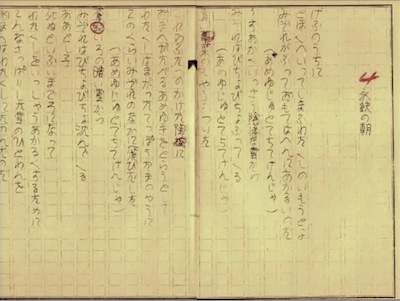 4
永訣の朝
けふのうちに
とほくへいってしまふわたくしのいもうとよ
みぞれがふっておもてはへんにあかるいのだ
(あめゆじゅとてちてけんじゃ)
うすあかくいっさう陰惨な雲から
みぞれはびちょびちょふってくる
(あめゆじゅとてちてけんじゃ)
蓴菜のもやうのついた
これらふたつのかけた陶椀に
おまへがたべるあめゆきをとらうとして
わたくしはまがったてっぽうだまのやうに
このくらいみぞれのなかに飛びだした
(あめゆじゅとてちてけんじゃ)
いろの暗い雲から
みぞれはびちょびちょ沈んでくる
ああとし子
死ぬといふいまごろになって
わたくしをいっしゃうあかるくするために
こんなさっぱりした雪のひとわんを
おまへはわたくしにたのんだのだ